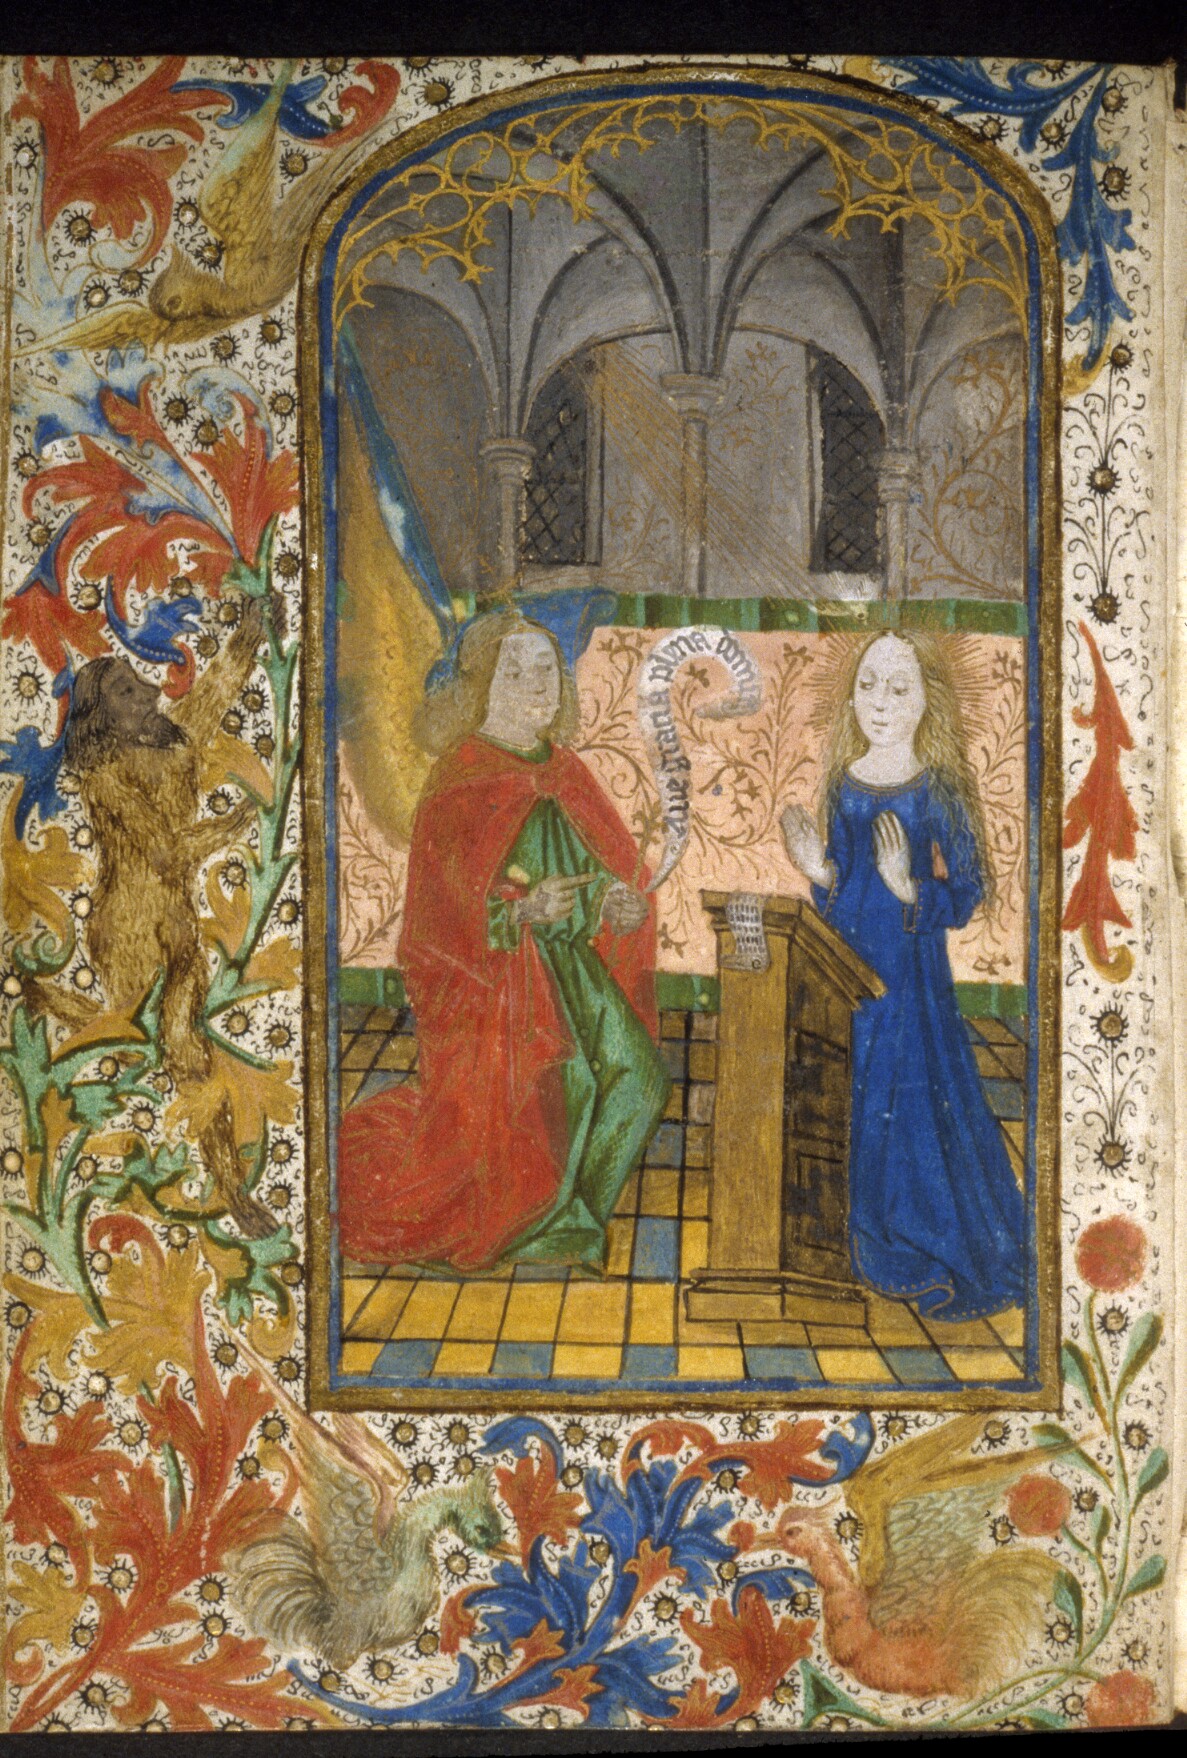 aue gracia plena domin